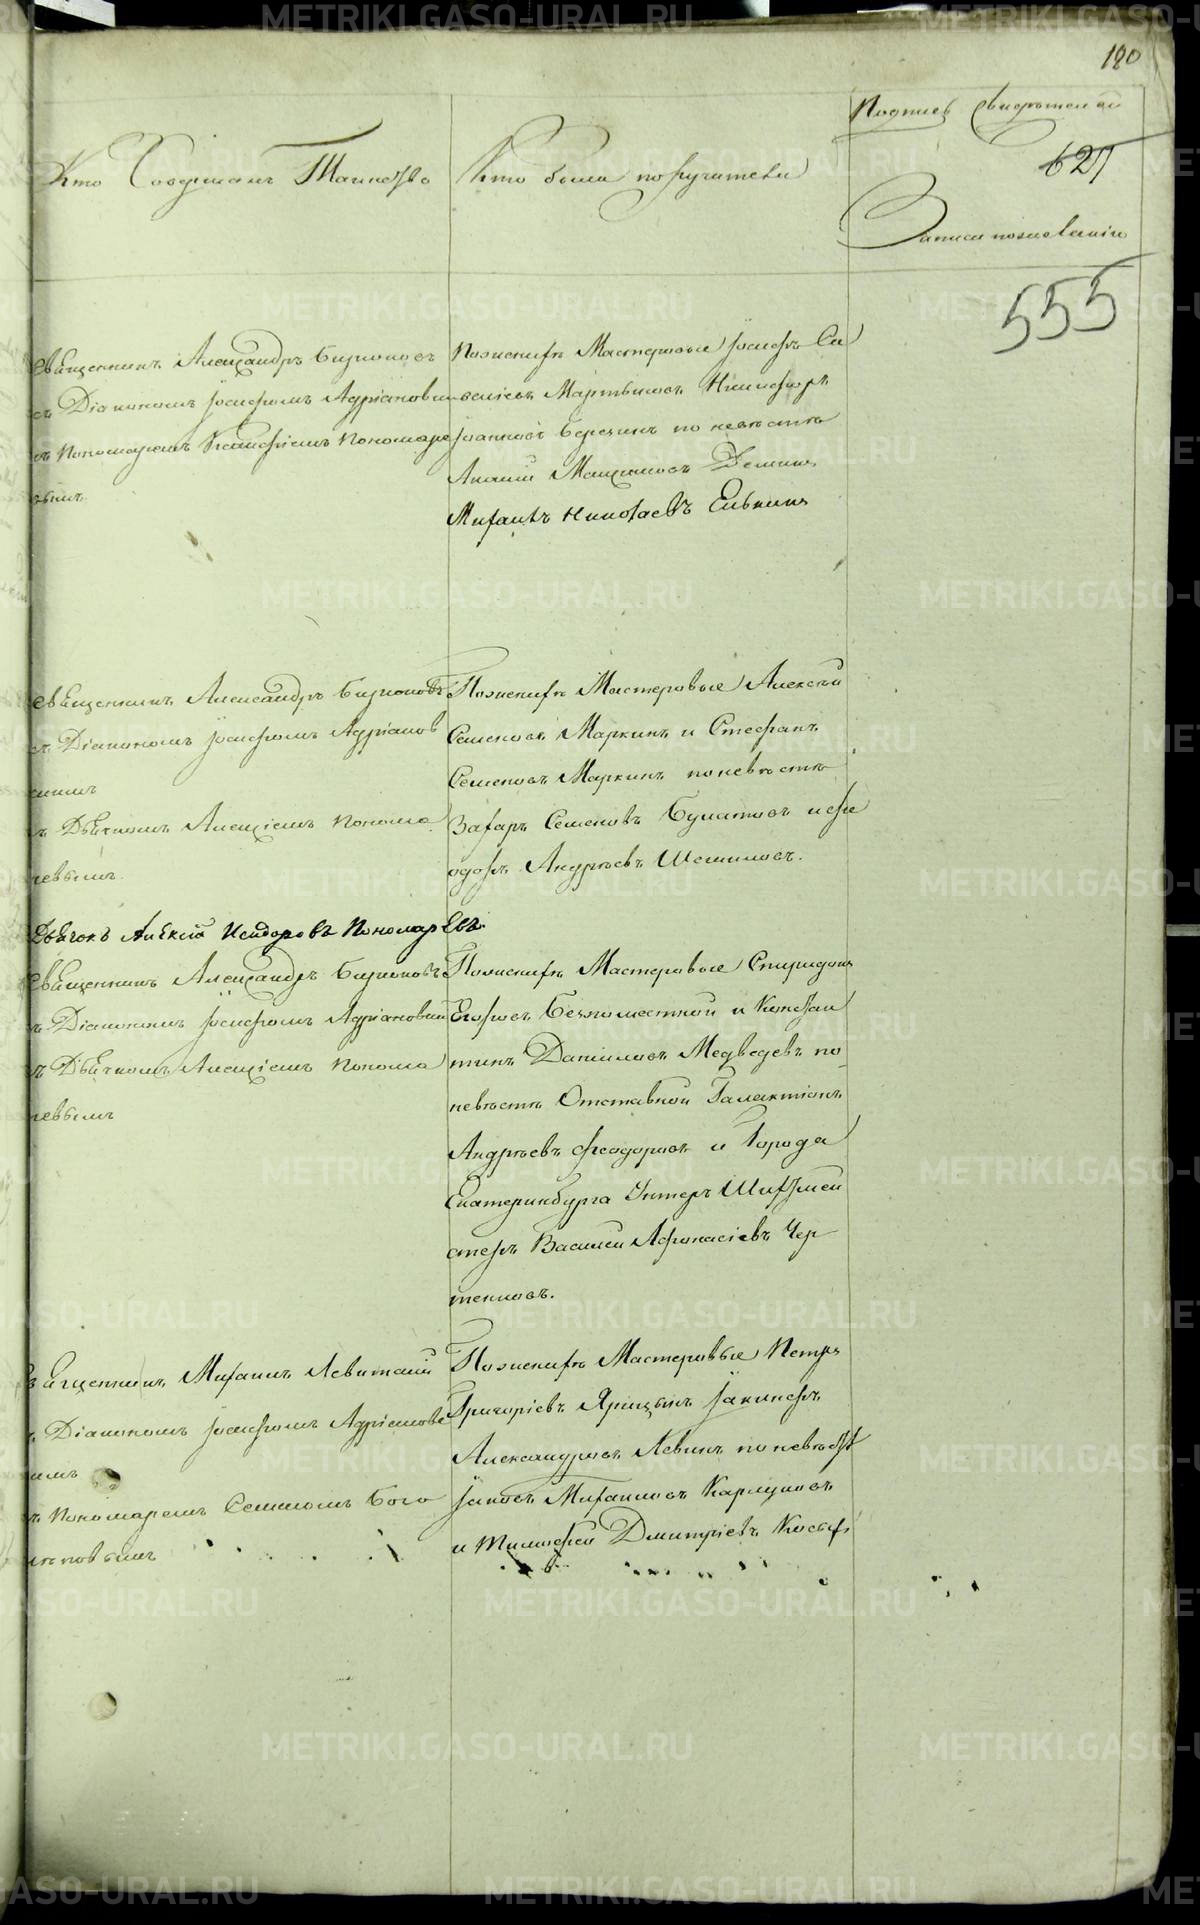 180
Подпись Свидѣтелей
Кто Совершалъ Таинство
Кто были поручители
627
Записи пожеланію
555
священникъ Александръ Бирюковъ
съ Діакономъ Іосифомъ Адріановы
съ Пономаремъ Пономаре
вымъ
Поженихѣ Мастеровые Іосифъ Са
веліевъ Мартыновъ Никифоръ
Іоанновъ Березинъ по невѣстѣ
Максимовъ
Михаилъ Николаевъ Елькинъ
священникъ Александръ Бирюковъ
съ Діакономъ Іосифомъ Адріанов
скимъ
ъ Дьячкомъ Алексіемъ Понома
ревымъ
Поженихѣ Мастеровые Алексѣй
Семеновъ Маркинъ и Стефанъ
Семеновъ Маркинъ поневѣстѣ
Захаръ Семеновъ Булатовъ и Фе
одоръ Андреевъ Шешиловъ.
Дьячокъ Алексій Исидоровъ Пономаревъ.
священникъ Александръ Бирюковъ
ъ Діакономъ Іосифомъ Адріановым
ъ Дьячкомъ Алексіемъ Понома
ревымъ
Поженихѣ Мастеровые Спиридонъ
Егоровъ Безпоместной и Констан
тинъ Даниловъ Медведевъ по
невѣстѣ Отставной Галактіонъ
Андреевъ Феодоровъ и Города
Екатеринбурга Унтеръ Шихтмей
стеръ Василій Афонасіевъ Чер
тенковъ.
священникъ Михаилъ Левитскій
Діакономъ Іосифомъ Адріановс
кимъ
ъ Пономаремъ Бого
лѣповымъ
Поженихѣ Мастеровые Петръ
Григоріевъ Ярицынъ Іакинфъ
Александровъ Левинъ по невѣстѣ
Іаковъ Михаиловъ Карпуковъ
и Тимофей Дмитріевъ Косых